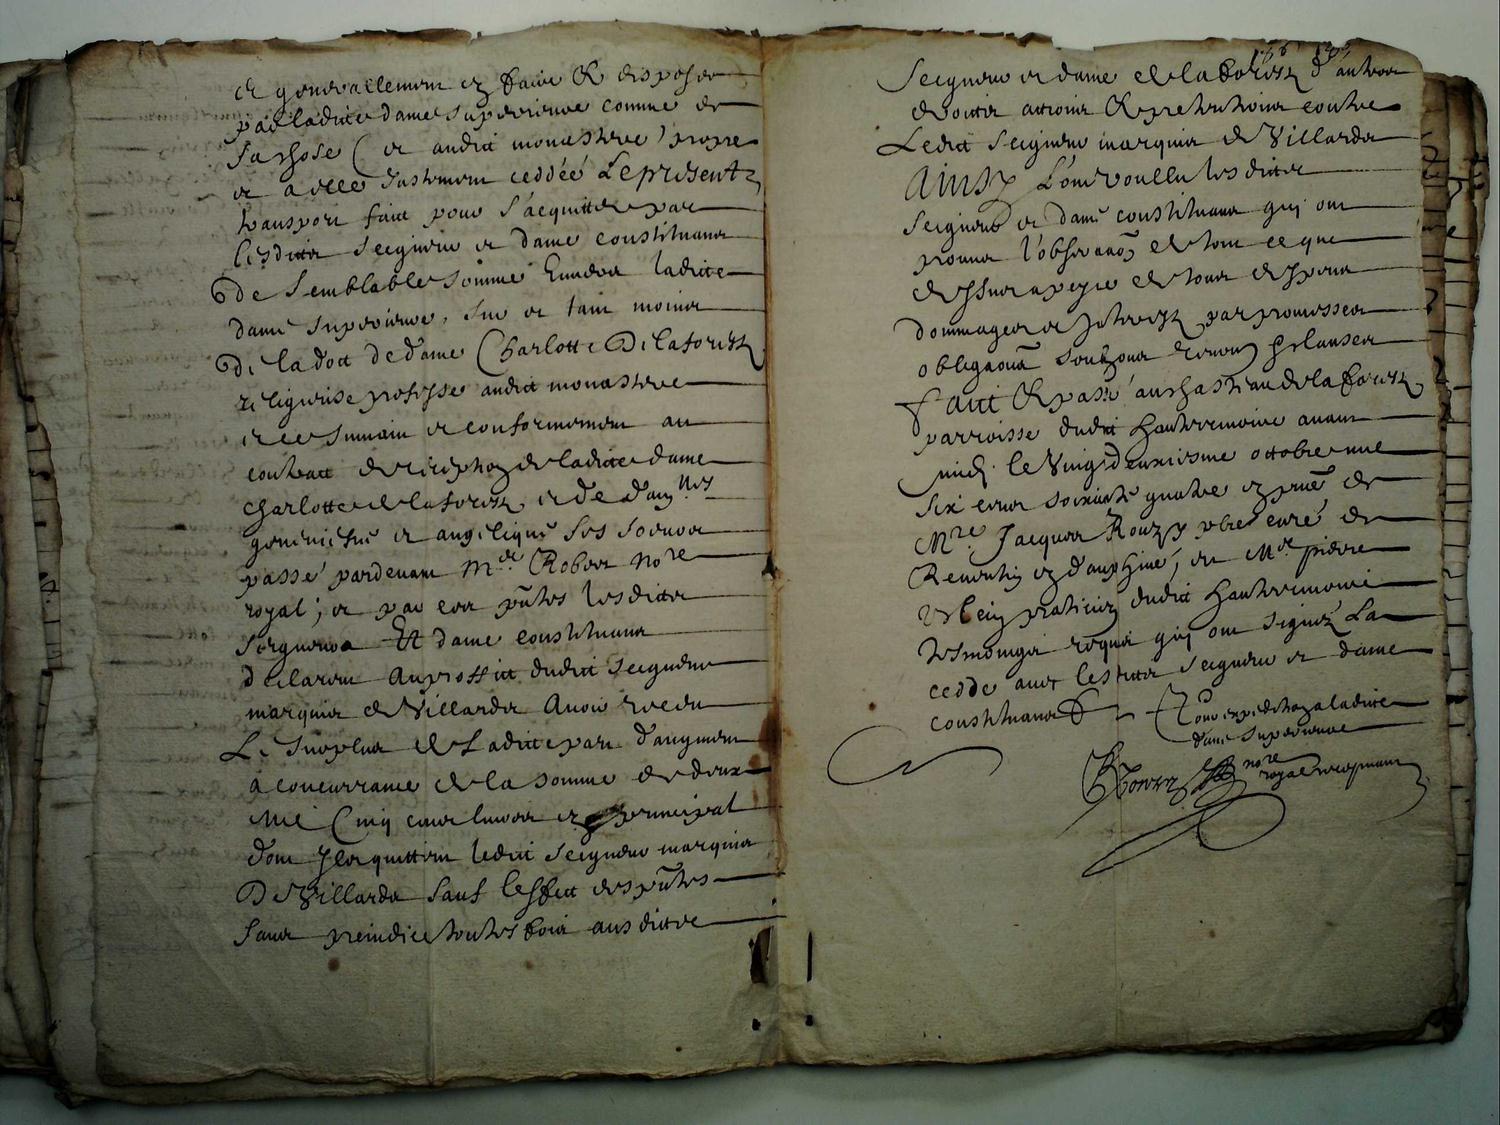 et generallement en faire & disposer
par ladicte dame superieure comme de
sa chose (et audict monastere) propre
et a elle justement ceddée Le present
transport faict pour s'acquitter par
lesdicts seigneur et dame constituans
De semblable somme Envers ladicte
dame superieure, sur et tant moins
De la dott de dame Charlotte De laforest
religieuse professe audict monastere
et ce suivant et conformement au
contract de ladicte dame
charlotte de laforest et de dam.lles
et angelique ses soeurs
passé pardevant M.re Robert no.re
royal; et par ces p̄ntes lesdicts
seigneurs Et dame constituans
declarent Auproffict dudict seigneur
marquis de Villards Avoir receu
Le surplus de Ladicte part d'augment
a concurrance de la somme de deux
mil Cinq cens livres en principal
dont Ils quittent ledict seigneur marquis
De Villards sauf l'effect des p̄ntes
sans preiudice toutesfois aus dicts
seigneur et dame de la forest d'autres
droicts actions & pretentions contre
Ledict seigneur marquis de Villards
Ainsy L'ont voullu lesdicts
seigneur et dame constituans qui ont
promis l'observaōn de tout ce que
dessus a peyne de tous despens
dommages et Interestz par promesses
obligaōns soubzmis renonōn et clauses
Faict & passé au chasteau de la forest
parroisse dudict hauterivoire avant
midi le Vingtdeuxiesme octobre mil
six cens soixante quatre en p̄nce de
M.re Jacques Rouzy pbre curé de
en d'auphiné, et M.re pierre
praticien dudict hauterivoire
tesmoings requis qui ont signéz La
cedde avec lesdicts seigneur et dame
constituans
Pour expedition a ladicte
dame superieure
no.re
royal